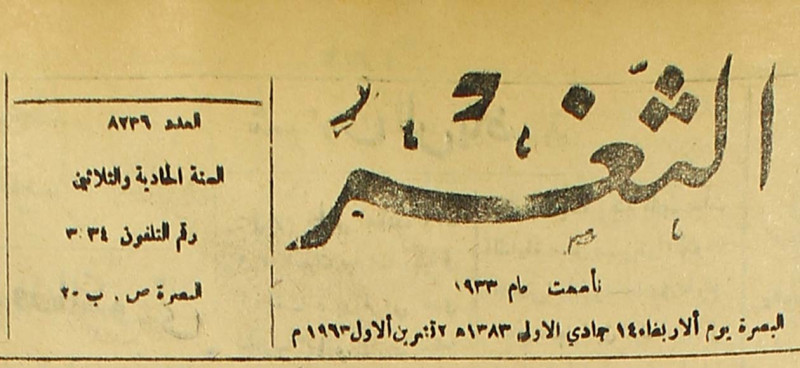 الثغر
تأسست عام ١٩٣٣
البصرة يوم الاربعاء ١٤ جمادي الاولى ١٣٨٣ه ٢ تشرين الاول ١٩٦٣ م
العدد ٨٢٣٦
السنة الحادية والثلاثين
رقم التلفون ٣٠٣٤
البصرة ص . ب ٢٠